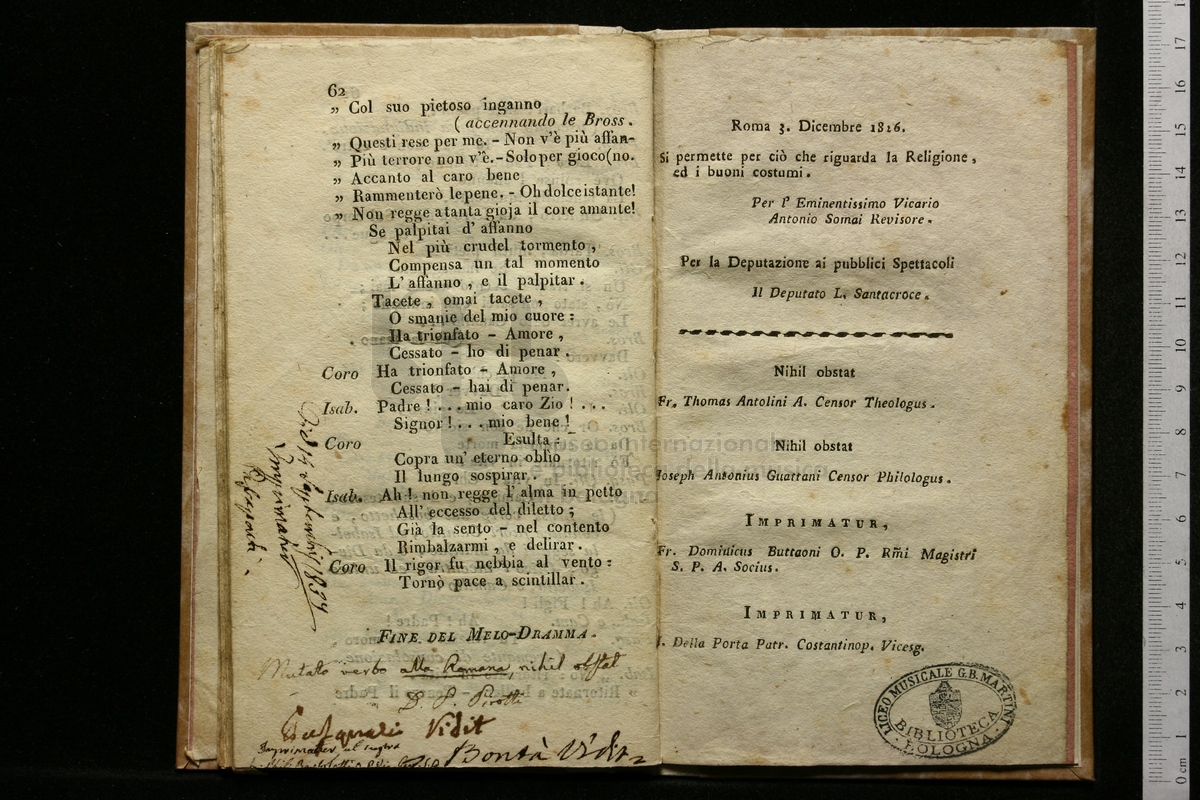 62
„ Col suo pietoso inganno
(accennando le Bross.
„ Questi rese per me. - Non v'è più affan-
„ Più terrore non v'è. - Solo per gioco(no.
„ Accanto al caro bene
„ Rammenterò le pene. - Oh dolce istante!
„ Non regge a tanta gioja il core amante!
Se palpitai d' affanno
Nel più crudel tormento,
Compensa un tal momento
L' affanno, e il palpitar.
Tacete, omai tacete,
O smanie del mio cuore:
Ha trionfato - Amore,
Cessato - ho di penar.
Coro Ha trionfato - Amore,
Cessato - hai di penar.
Isab. Padre! ... mio caro Zio! ...
Signor! ... mio bene!
Coro Esulta:
Copra un' eterno oblìo
Il lungo sospirar.
Isab. Ah! non regge l' alma in petto
All' eccesso del diletto;
Già la sento - nel contento
Rimbalzarmi, e delirar.
Coro Il rigor fu nebbia al vento:
Tornò pace a scintillar.
FINE DEL MELO-DRAMMA.
Mutato verbo alla Romana, nihil obstat
Vidit
Bontà Vidit
Die 14 Septembris 1834
Imprimatur
Roma 3. Dicembre 1816.
Si permette per ciò che riguarda la Religione,
ed i buoni costumi.
Per l' Eminentissimo Vicario
Antonio Somai Revisore.
Per la Deputazione ai pubblici Spettacoli
Il Deputato L. Santacroce.
Nihil obstat
Fr. Thomas Antolini A. Censor Theologus.
Nihil obstat
Joseph Antonius Guattani Censor Philologus.
IMPRIMATUR,
Fr. Dominicus Buttaoni O. P. Rm̃i Magistri
S. P. A. Socius.
IMPRIMATUR,
J. Della Porta Patr. Costantinop. Vicesg.
LICEO MUSICALE G.B. MARTINI
BIBLIOTECA
BOLOGNA
museo internazionale
e biblioteca della musica
0 cm 1 2 3 4 5 6 7 8 9 10 11 12 13 14 15 16 17